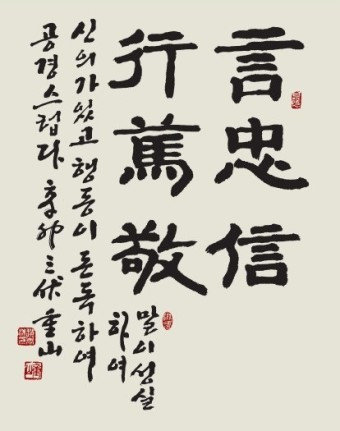 言忠信
行篤敬
말이 성실
하여
신의가 있고 행동이 돈독하여
공경스럽다. 卯 三伏 重山